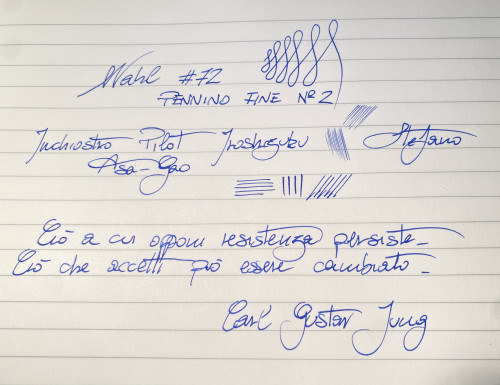 Wahl #72
PENNINO FINE Nº 2
Inchiostro Pilot Iroshizuku
Asa-Gao
Stefano
Ciò a cui opponi resistenza persiste_
Ciò che accetti può essere cambiato_
Carl Gustav Jung